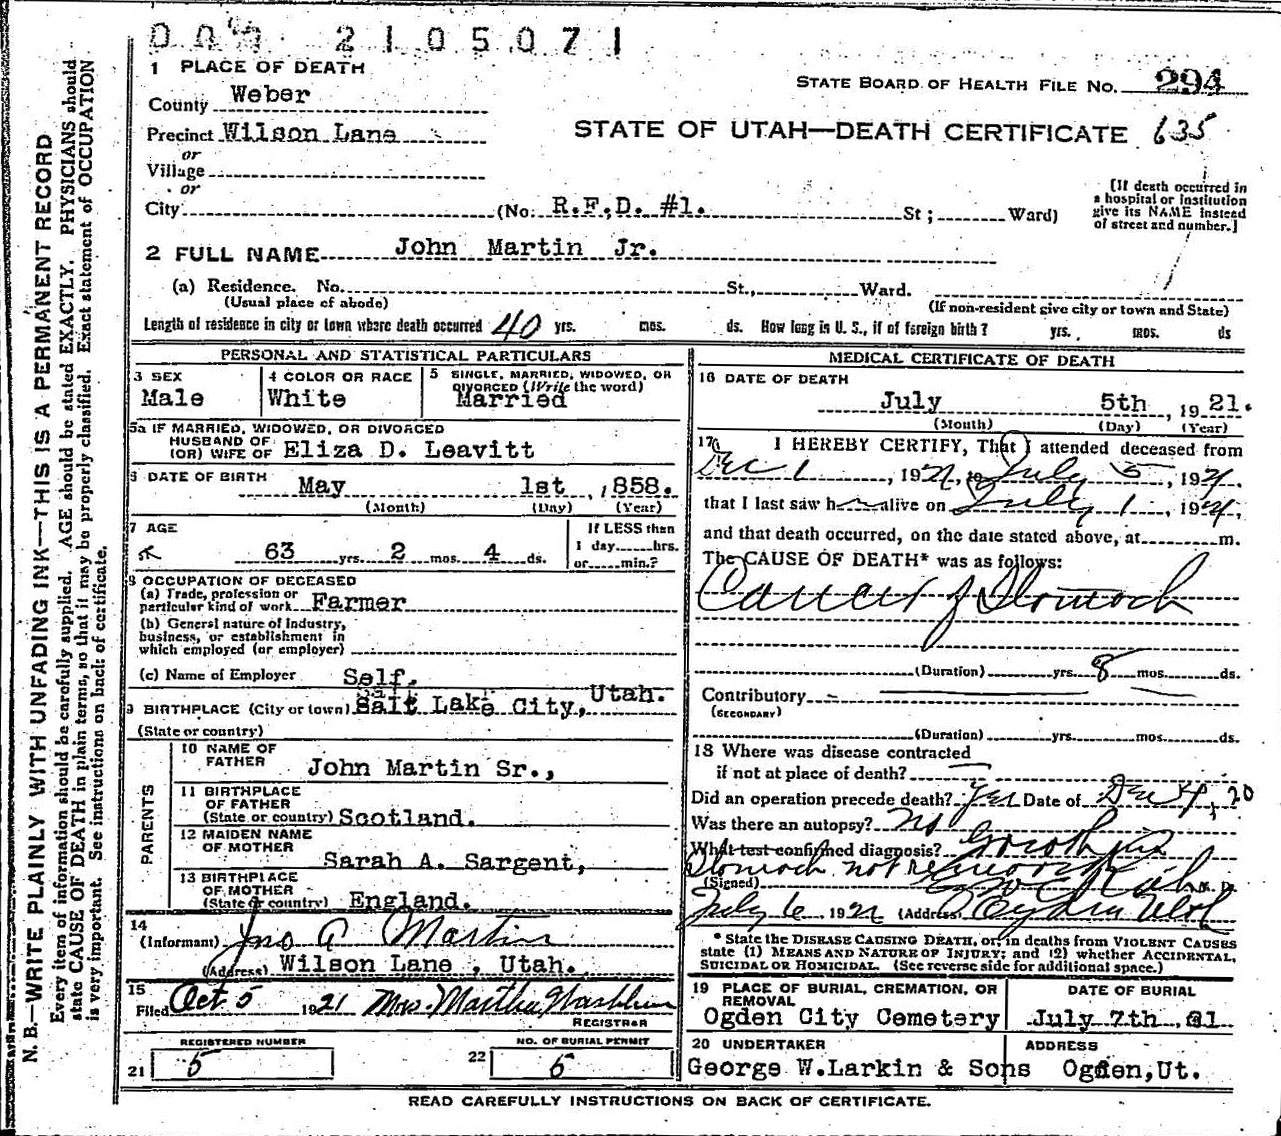 2105071
1 PLACE OF DEATH
STATE BOARD OF HEALTH FILE No. 294
County Weber
Precinct Wilson Lane
STATE OF UTAH—DEATH CERTIFICATE 635
or
Village
or
City (No. R.F.D. #1. St; Ward)
[If death occurred in
a hospital or institution
give its NAME instead
of street and number.]
2 FULL NAME John Martin Jr.
(a) Residence. No. St., Ward.
(Usual place of abode)
(If non-resident give city or town and State)
Length of residence in city or town where death occurred 40 yrs. mos. ds. How long in U. S., if of foreign birth? yrs. mos. ds
PERSONAL AND STATISTICAL PARTICULARS
3 SEX
Male
4 COLOR OR RACE
White
5 SINGLE, MARRIED, WIDOWED, OR
DIVORCED (Write the word)
Married
5a IF MARRIED, WIDOWED, OR DIVORCED
HUSBAND OF
(OR) WIFE OF Eliza D. Leavitt
6 DATE OF BIRTH
May 1st , 1858.
(Month) (Day) (Year)
7 AGE
63 yrs. 2 mos. 4 ds.
If LESS than
1 day hrs.
or min.?
8 OCCUPATION OF DECEASED
(a) Trade, profession or
particular kind of work Farmer
(b) General nature of industry,
business, or establishment in
which employed (or employer)
(c) Name of Employer Self.
9 BIRTHPLACE (City or town) Salt Lake City, Utah.
(State or country)
PARENTS
10 NAME OF
FATHER John Martin Sr.,
11 BIRTHPLACE
OF FATHER
(State or country) Scotland.
12 MAIDEN NAME
OF MOTHER Sarah A. Sargent,
13 BIRTHPLACE
OF MOTHER
(State or country) England.
14
(Informant) Jno A Martin
(Address) Wilson Lane, Utah.
15
Filed Oct 5 1921 Mrs. Martha Washburn
REGISTRAR
REGISTERED NUMBER
21 5
NO. OF BURIAL PERMIT
22 5
MEDICAL CERTIFICATE OF DEATH
16 DATE OF DEATH
July 5th , 1921.
(Month) (Day) (Year)
17 I HEREBY CERTIFY, That I attended deceased from
Dec 1 , 192 , to July 5 , 192
that I last saw h alive on July 1 , 192
and that death occurred, on the date stated above, at m.
The CAUSE OF DEATH* was as follows:
Cancer of Stomach
(Duration) yrs. 8 mos. ds.
Contributory
(SECONDARY)
(Duration) yrs. mos. ds.
18 Where was disease contracted
if not at place of death?
Did an operation precede death? Yes Date of Dec 4, 20
Was there an autopsy? No
What test confirmed diagnosis?
Stomach not removed
(Signed) M. D.
July 6, 192 (Address) Ogden Utah
* State the DISEASE CAUSING DEATH, or, in deaths from VIOLENT CAUSES
state (1) MEANS AND NATURE OF INJURY; and (2) whether ACCIDENTAL,
SUICIDAL OR HOMICIDAL. (See reverse side for additional space.)
19 PLACE OF BURIAL, CREMATION, OR
REMOVAL
Ogden City Cemetery
DATE OF BURIAL
July 7th, 21
20 UNDERTAKER
George W.Larkin & Sons
ADDRESS
Ogden,Ut.
READ CAREFULLY INSTRUCTIONS ON BACK OF CERTIFICATE.
N. B.—WRITE PLAINLY WITH UNFADING INK—THIS IS A PERMANENT RECORD
Every item of information should be carefully supplied. AGE should be stated EXACTLY. PHYSICIANS should
state CAUSE OF DEATH in plain terms, so that it may be properly classified. Exact statement of OCCUPATION
is very important. See instructions on back of certificate.